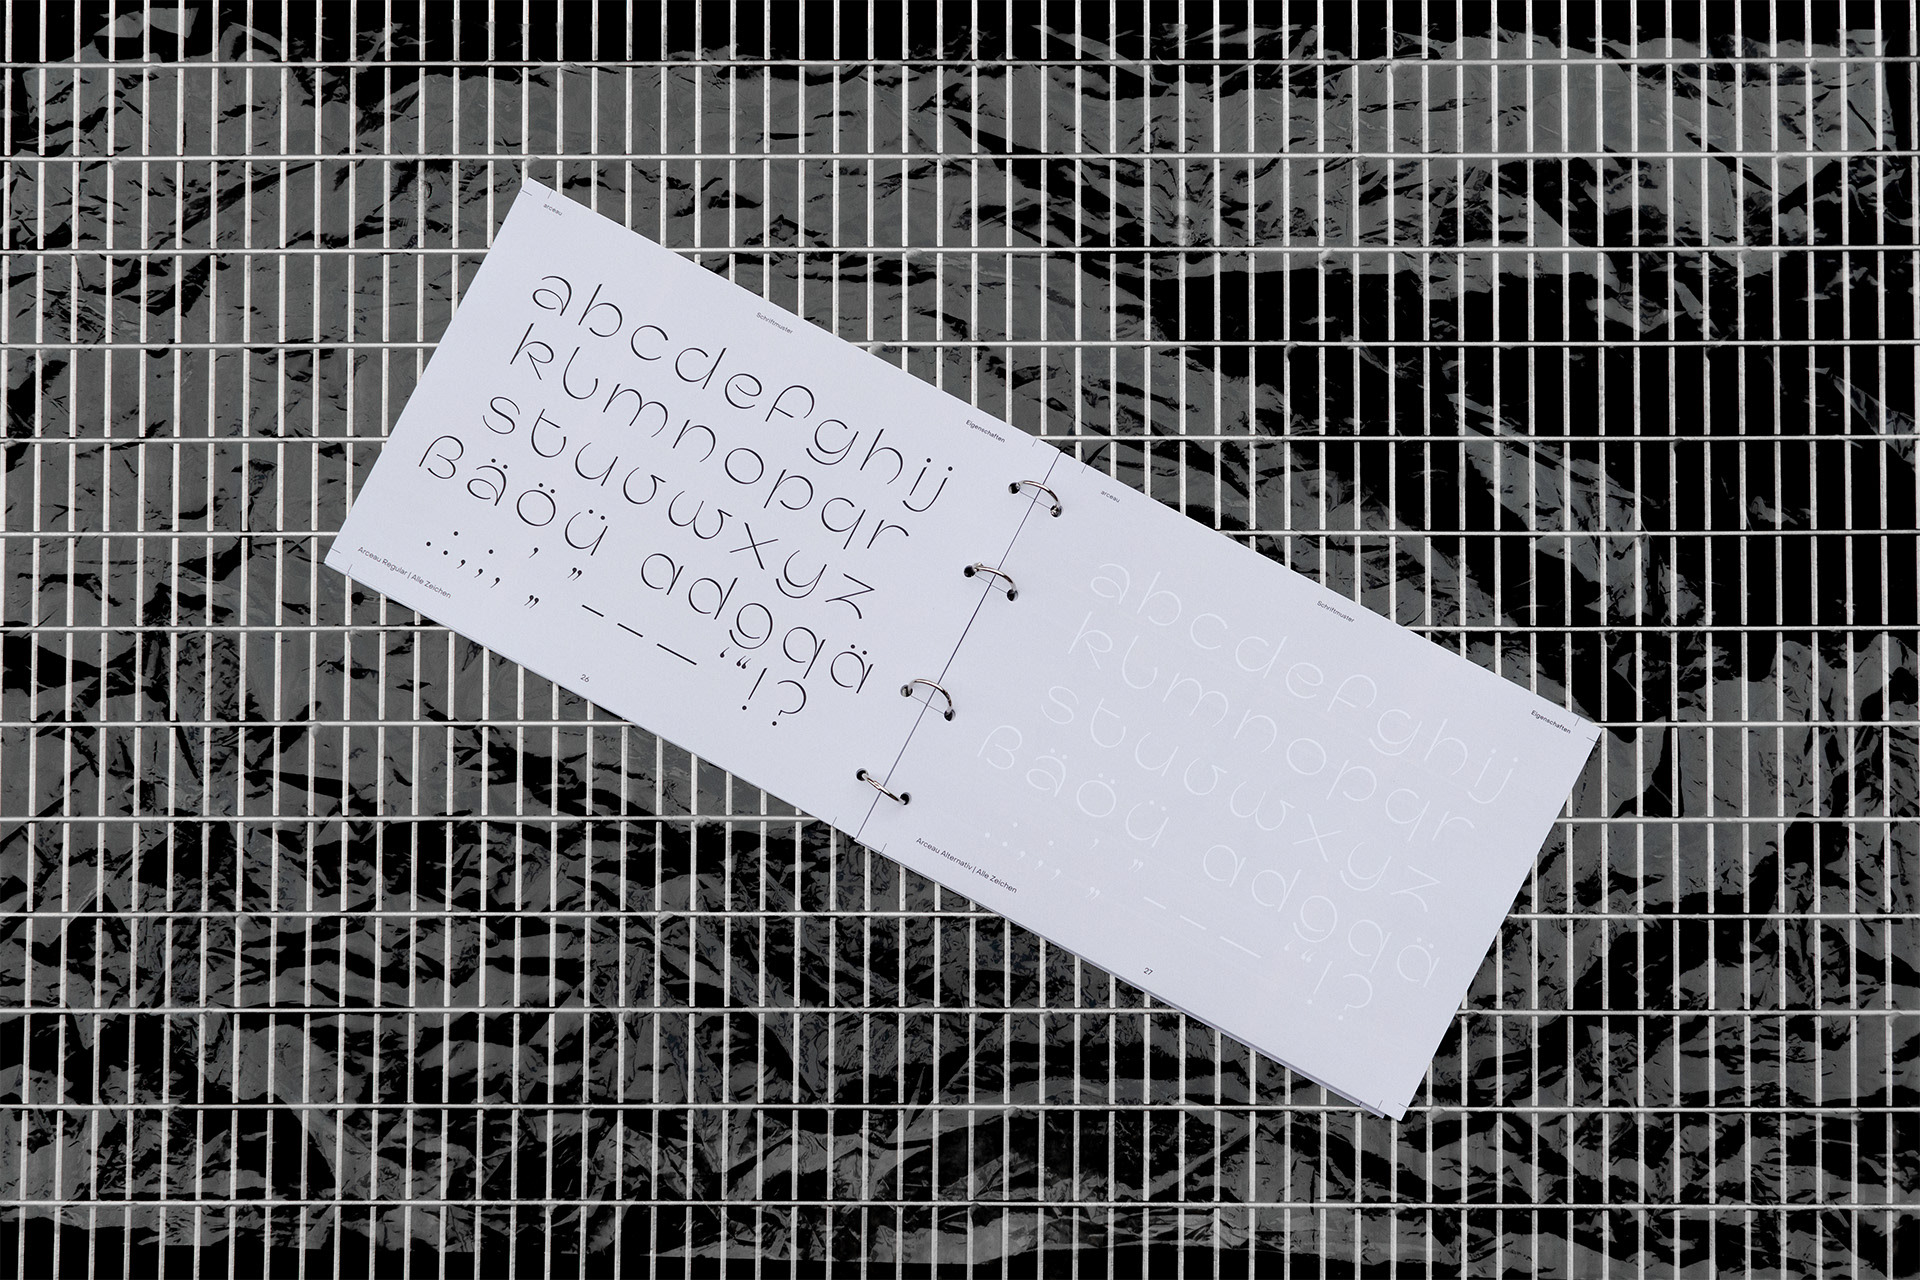 arceau
Schriftmuster
Eigenschaften
abcdefghij
klmnopqr
stuvwxyz
ßäöü adgqä
.:;,; ’ ” – — — ‘ “ ! ?
Arceau Regular | Alle Zeichen
26
arceau
Schriftmuster
Eigenschaften
abcdefghij
klmnopqr
stuvwxyz
ßäöü adgqä
! ?
Arceau Alternativ | Alle Zeichen
27